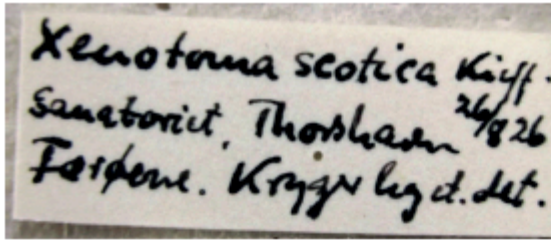 Xenotoma scotica Kieff.
Sanatoriet, Thorshavn 26/8 26
Færøerne. Kryger leg. et. det.